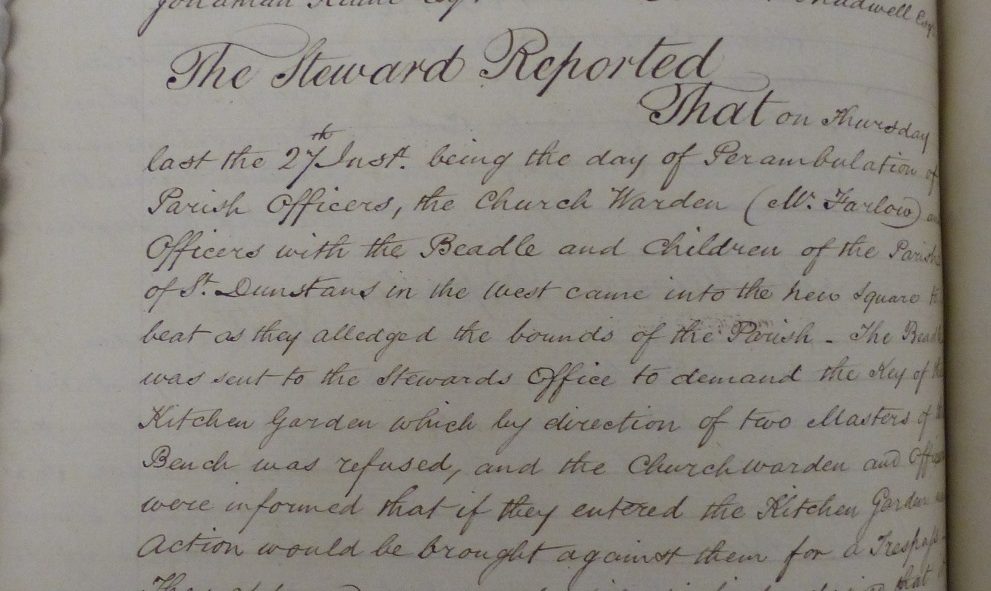 Chadwell Esqr
The Steward Reported
That on Thursday
last the 27th Inst. being the day of Perambulation of
Parish Officers, the Church Warden (Mr. Farlow) and
Officers with the Beadle and Children of the Parish
of St. Dunstans in the West came into the New Square to
beat as they alledged the bounds of the Parish - The Beadle
was sent to the Stewards Office to demand the Key of the
Kitchen Garden which by direction of two Masters of the
Bench was refused, and the Churchwarden and Officers
were informed that if they entered the Kitchen Garden an
Action would be brought against them for a Trespass
that